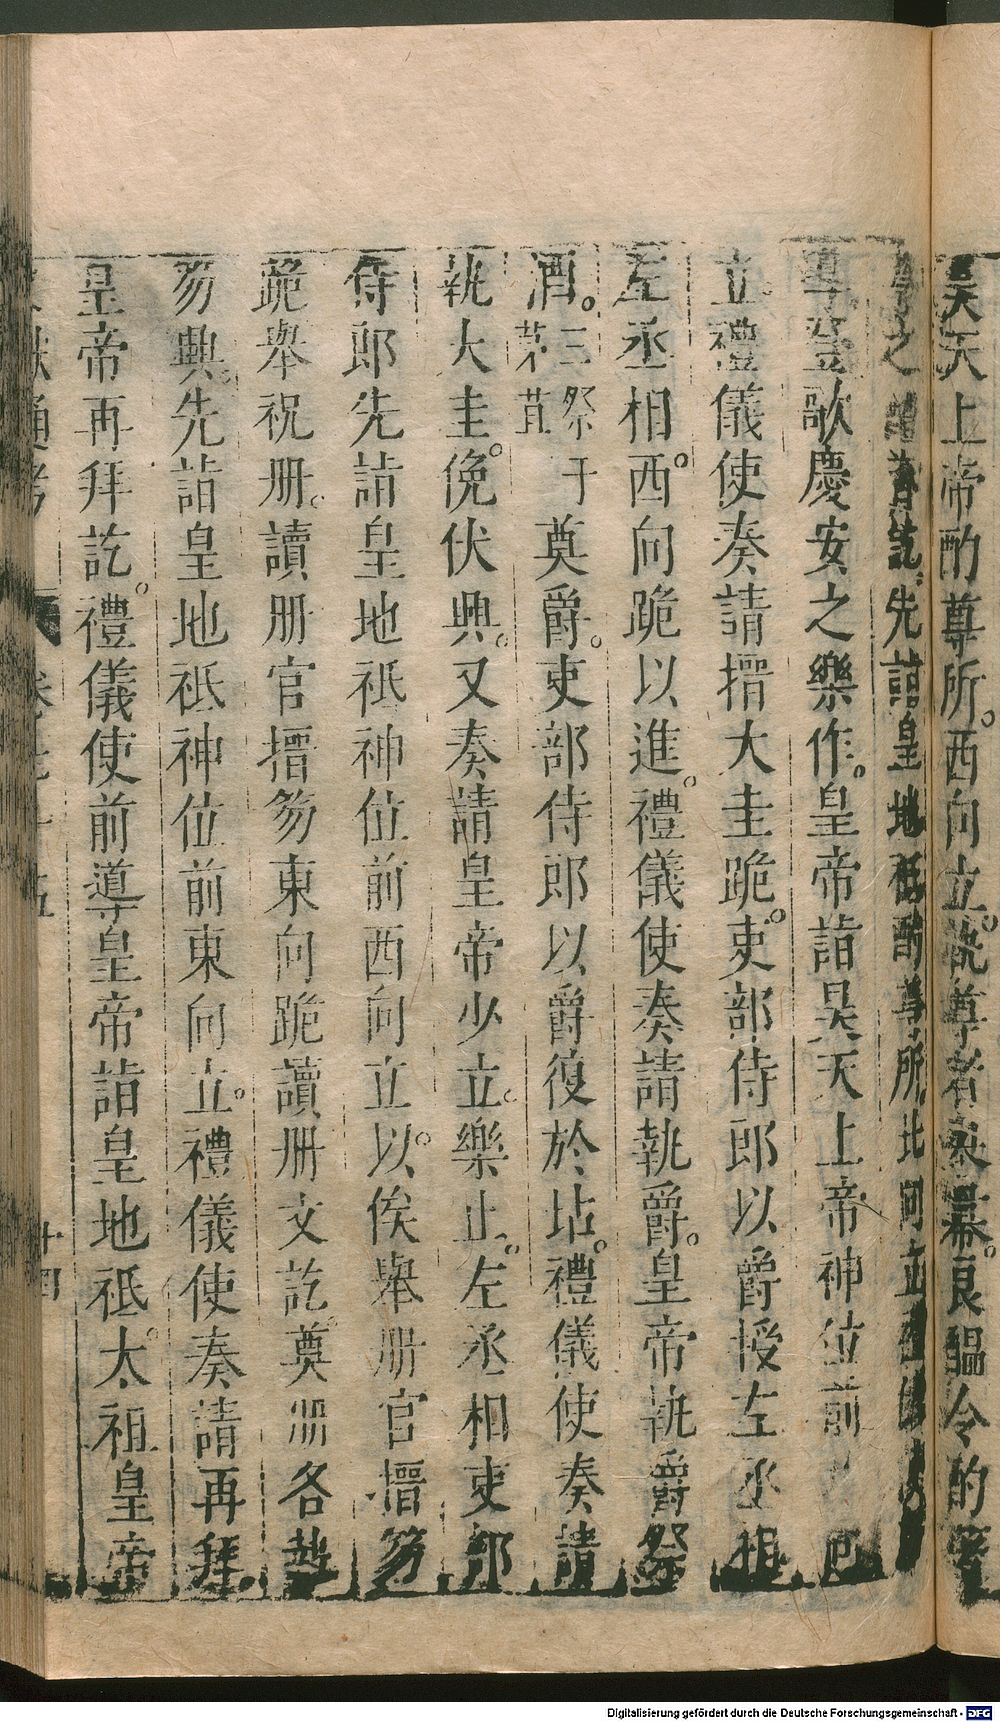 昊天上帝酌尊所。西向立。執尊者舉冪。良醞令酌
之 訖先詣皇地祇酌尊所北向立
尊登歌慶安之樂作。皇帝詣昊天上帝神位前 向
立禮儀使奏請搢大圭跪。吏部侍郎以爵授左丞相
左丞相。西向跪以進。禮儀使奏請執爵。皇帝執爵祭
酒。三祭于茅苴 奠爵。吏部侍郎以爵復於坫。禮儀使奏請
執大圭。俛伏興。又奏請皇帝少立。樂止。左丞相吏部
侍郎先詣皇地祇神位前西向立。以俟舉册官搢笏
跪舉祝册。讀册官搢笏東向跪讀册文訖。奠册各執
笏興。先詣皇地祇神位前東向立。禮儀使奏請再拜。
皇帝再拜訖。禮儀使前導皇帝詣皇地祇。太祖皇帝
獻通考 卷 十四
Digitalisierung gefördert durch die Deutsche Forschungsgemeinschaft - DFG